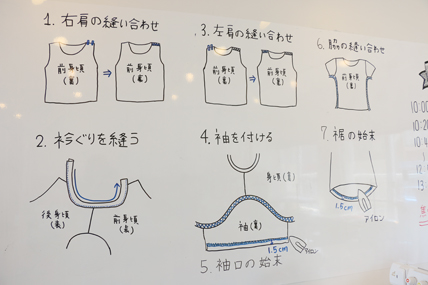 1. 右肩の縫い合わせ
前身頃
(裏)
⇒
前身頃
(裏)
2. 衿ぐりを縫う
後身頃
(表)
前身頃
(裏)
3. 左肩の縫い合わせ
前身頃
(裏)
⇒
前身頃
(裏)
4. 袖を付ける
身頃(裏)
袖(裏)
1.5cm
アイロン
5. 袖口の始末
6. 脇の縫い合わせ
前身頃
(裏)
7. 裾の始末
1.5cm
アイロン
10:00
10:20